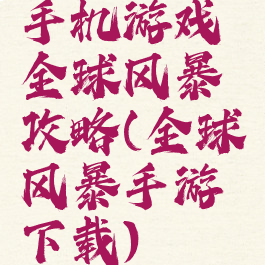 手机游戏
全球风暴
攻略(全球
风暴手游
下载)